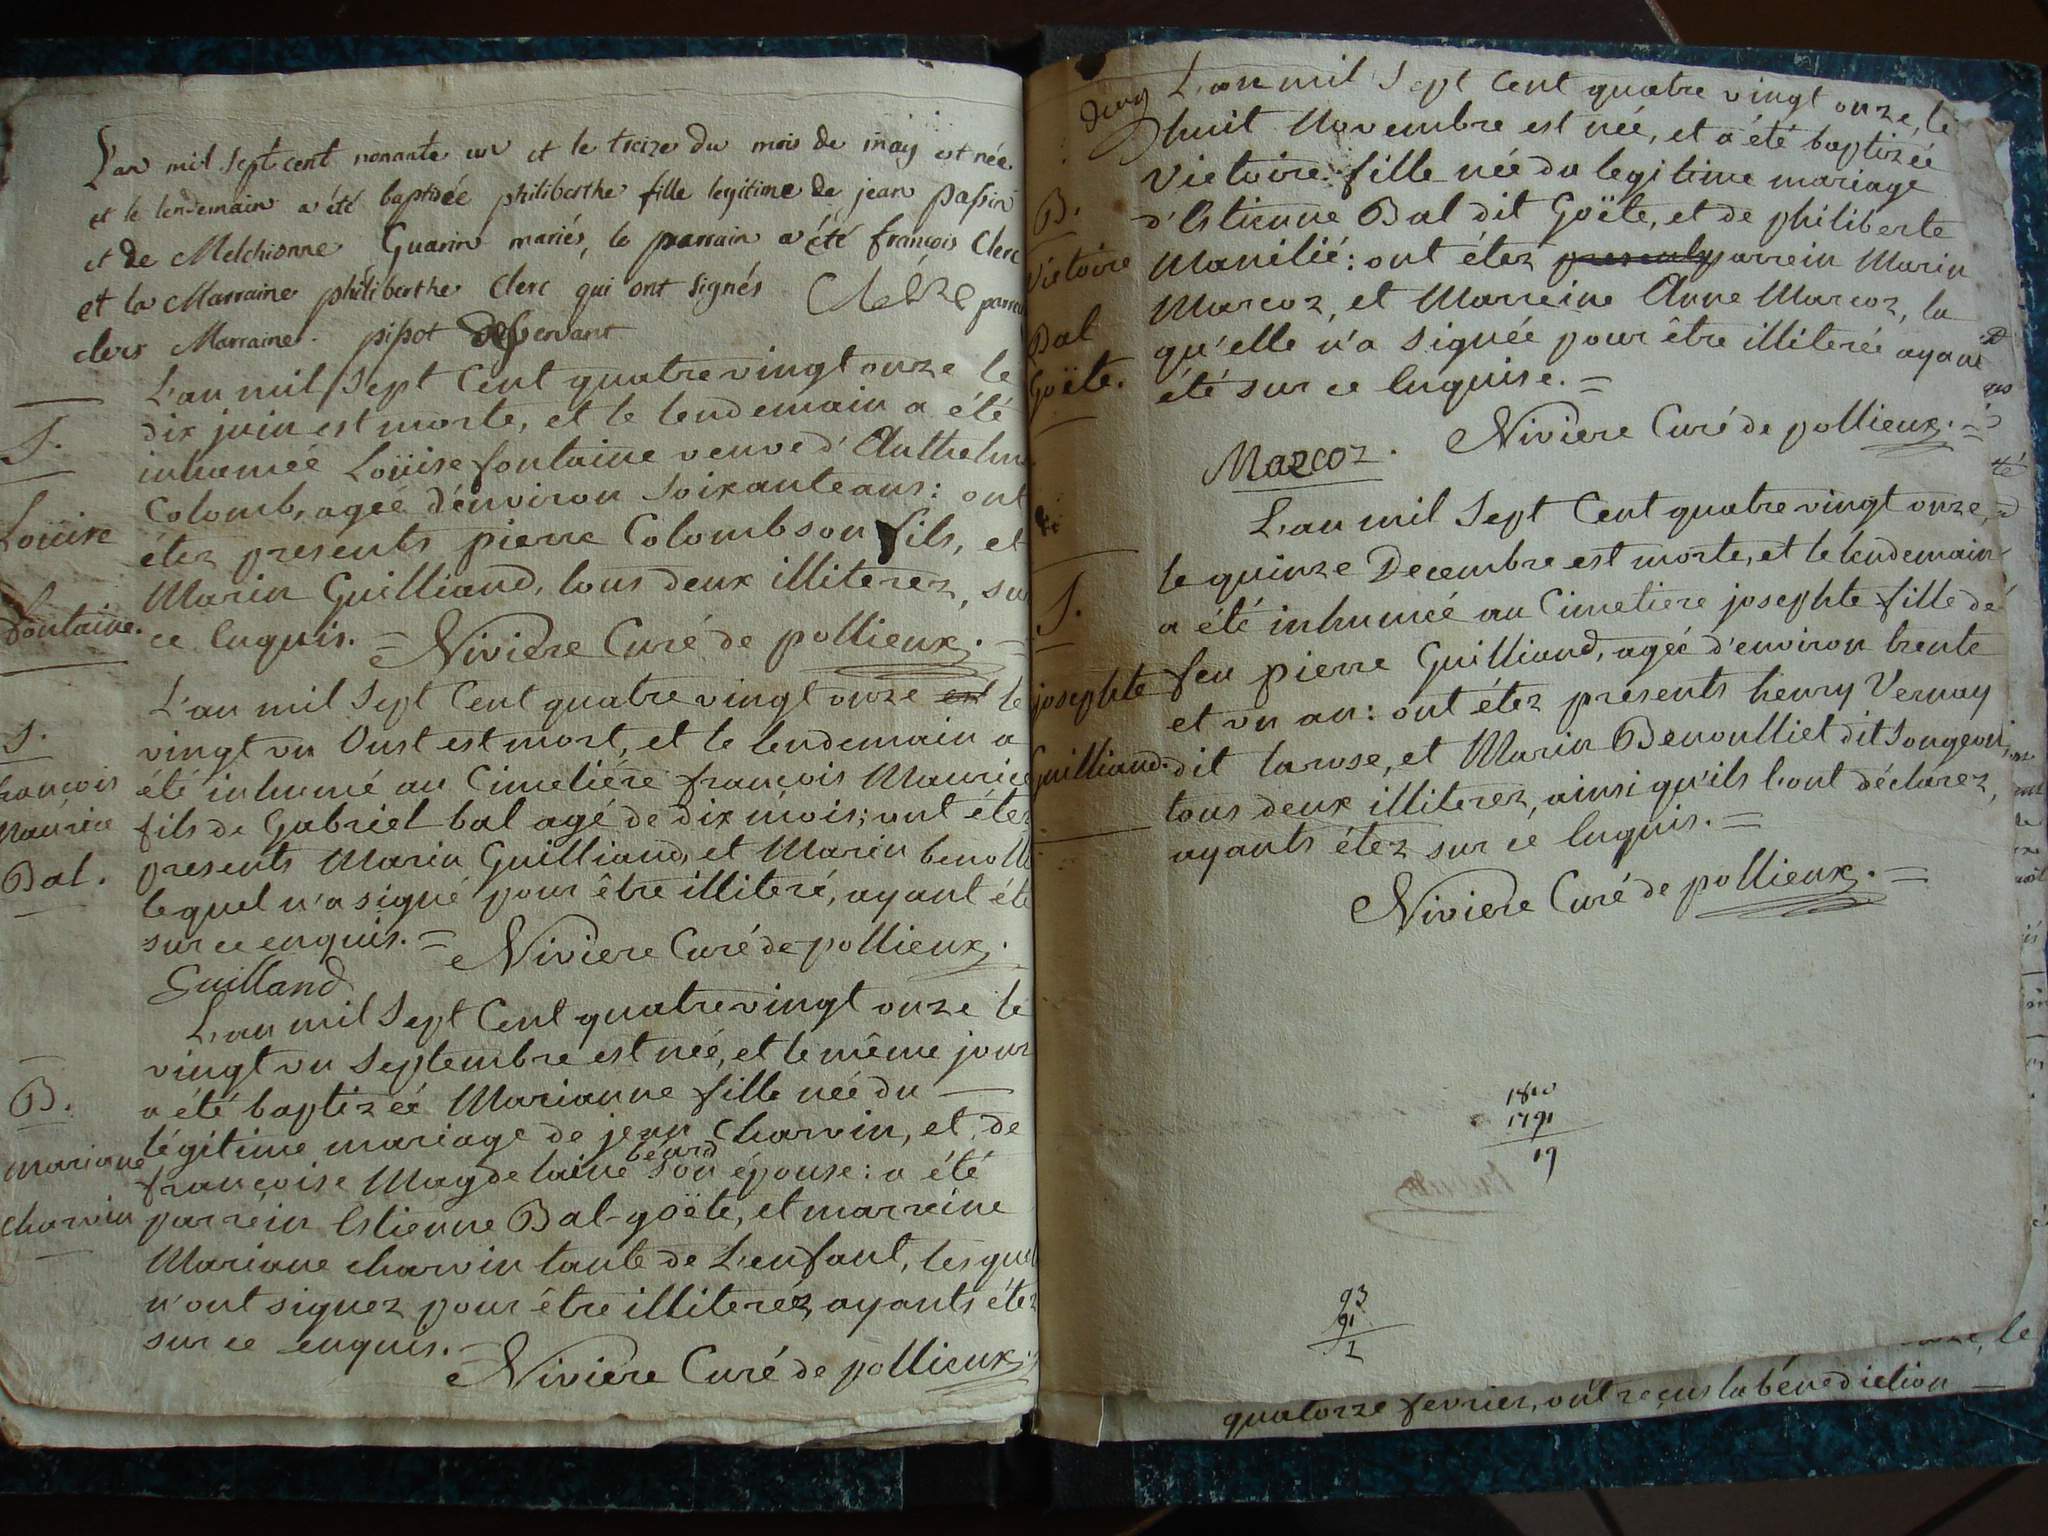 L'an mil sept cent nonante un et le treize du mois de may est née
et le lendemain a été baptisée philiberthe fille legitime de jean passin
et de Melchionne Guarin mariés, le parrain a été françois Clerc
et la Marraine philiberthe Clerc qui ont signés Clerc parrain
clerc Marraine. pissot desservant
L'an mil sept Cent quatre vingt onze le
dix juin est morte, et le lendemain a été
S.
inhumeé Loüise fontaine veuve d'Anthelme
Colomb, ageé d'environ soixante ans: ont
Loüise
étez presents pierre Colomb son fils, et
Marin Guilliand, tous deux illiterez, sur
fontaine.
ce Enquis. = Niviere Curé de pollieux. =
L'an mil Sept Cent quatre vingt onze est le
S.
vingt un Oust est mort, et le lendemain a
françois
été inhumé au Cimetiére françois Maurice
Maurice
fils de Gabriel bal agé de dix mois; ont étez
Bal.
presents Marin Guilliand, et Marin benoll
lequel n'a signé pour être illiteré, ayant été
sur ce enquis. = Niviere Curé de pollieux.
Guilland
L'an mil Sept Cent quatre vingt onze le
vingt un Septembre est née, et le même jour
B.
a été baptizeé Marianne fille née du
légitime mariage de jean Charvin, et de
béard
mariane
françoise Magdelaine son épouse: a été
charvin
parrein Estienne Bal-goëte, et marreine
Mariane charvin tante de L'enfant, lesquel
n'ont signez pour être illiterez, ayants étez
sur ce enquis. Niviere Curé de pollieux.
L'an mil Sept Cent quatre vingt onze, le
huit Novembre est née, et a été baptizée
Victoire fille née du legitime mariage
B.
d'Estienne Bal dit Goëte, et de philiberte
Victoire
Manilié: ont étez presents parrein Marin
Marcoz, et Marreine Anne Marcoz, la
Bal
qu'elle n'a signée pour être illiterée ayant
Goëte.
été sur ce Enquise. =
Niviere Curé de pollieux. =
Marcoz.
L'an mil Sept Cent quatre vingt onze,
le quinze Decembre est morte, et le lendemain
S.
a été inhumeé au Cimetiere josephte fille de
josephte
feu pierre Guilliand, ageé d'environ trente
et un an: ont étez presents henry Vernay
Guilliand.
dit larose, et Marin Benoulliet dit Songeon,
tous deux illiterez, ainsi qu'ils l'ont déclarez,
ayants étez sur cé Enquis. =
Niviere Curé de pollieux. =
1810
1791
19
93
91
2
le
quatorze fevrier, ont reçus la bénédiction